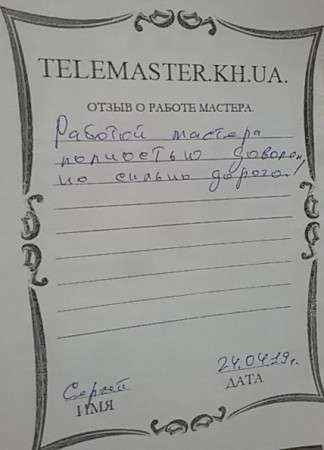 TELEMASTER.KH.UA.
ОТЗЫВ О РАБОТЕ МАСТЕРА.
Работой мастера
полностью доволен,
но сильно дорого.
Сергей
24.04.19г.
ИМЯ
ДАТА